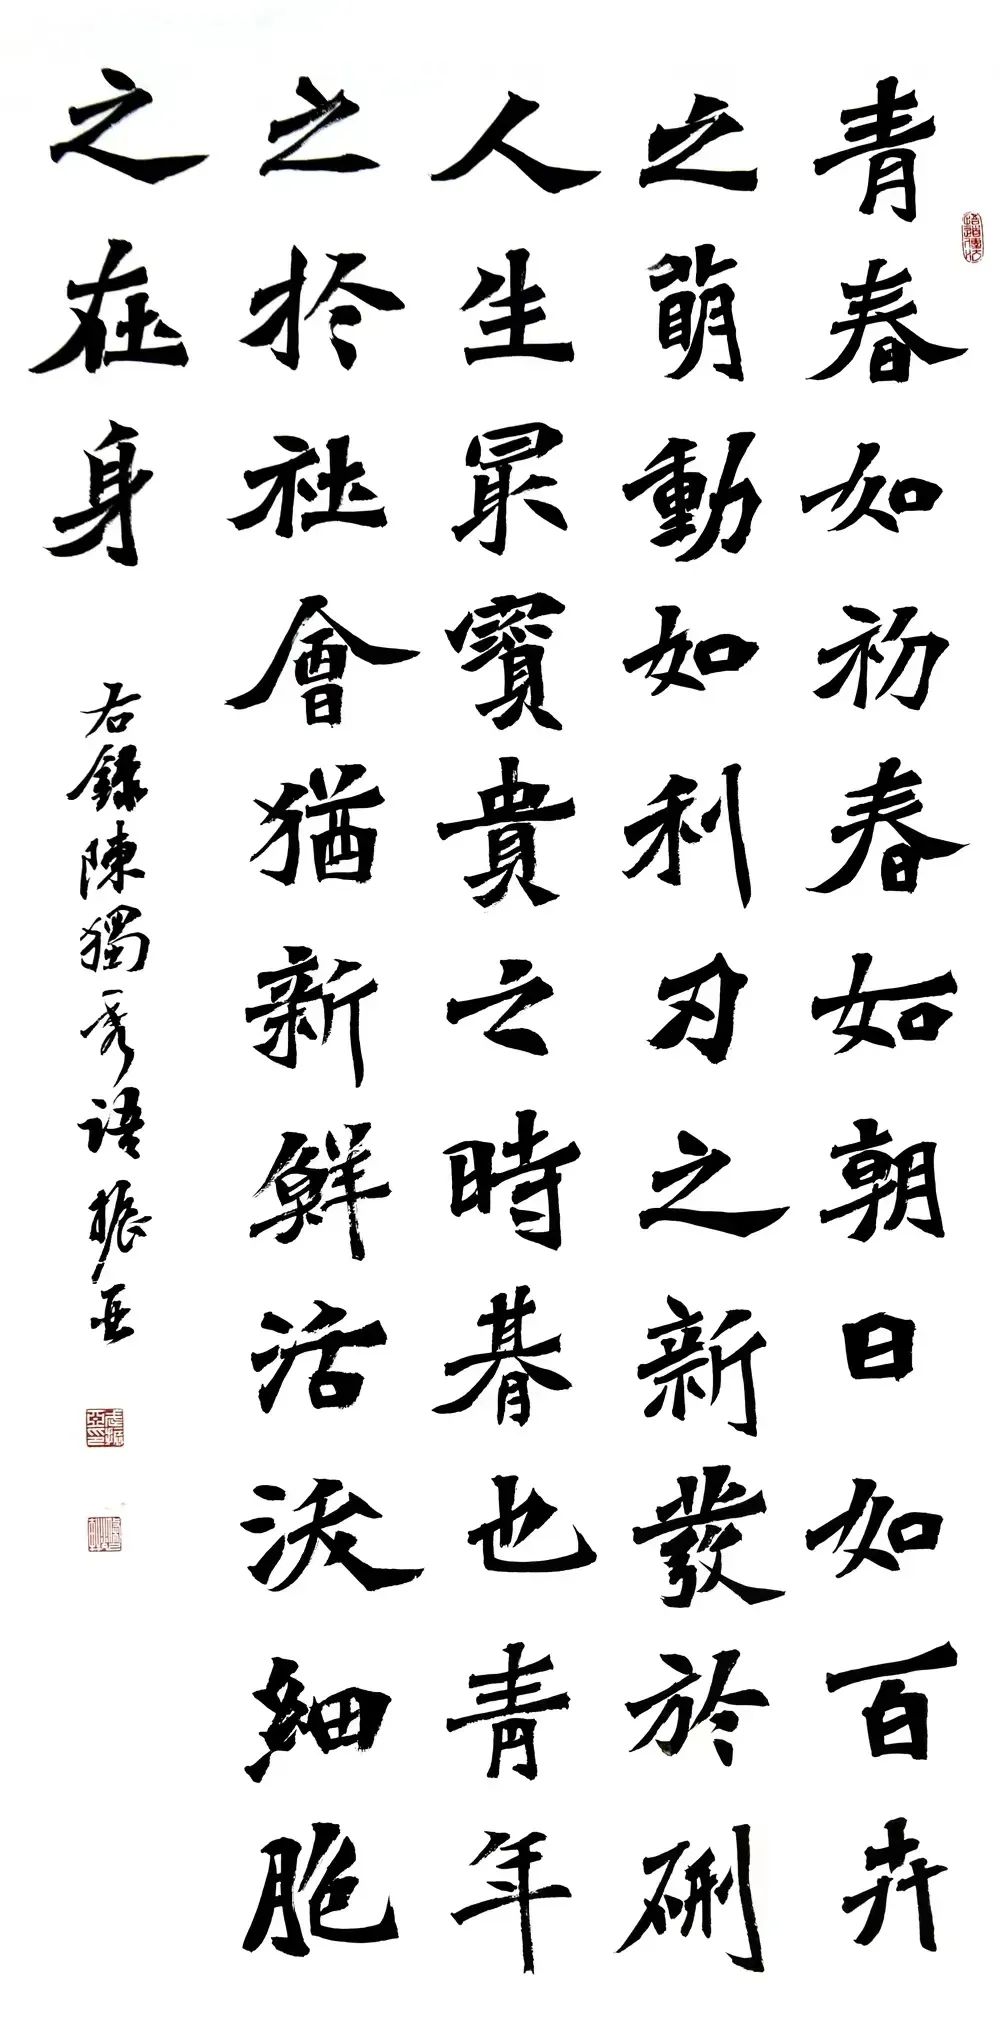 青春如初春如朝日如百卉
之萌動如利刃之新發於硎
人生最寶貴之時朞也青年
之扵社會猶新鮮活泼細胞
之在身
右録陳獨秀語振亞